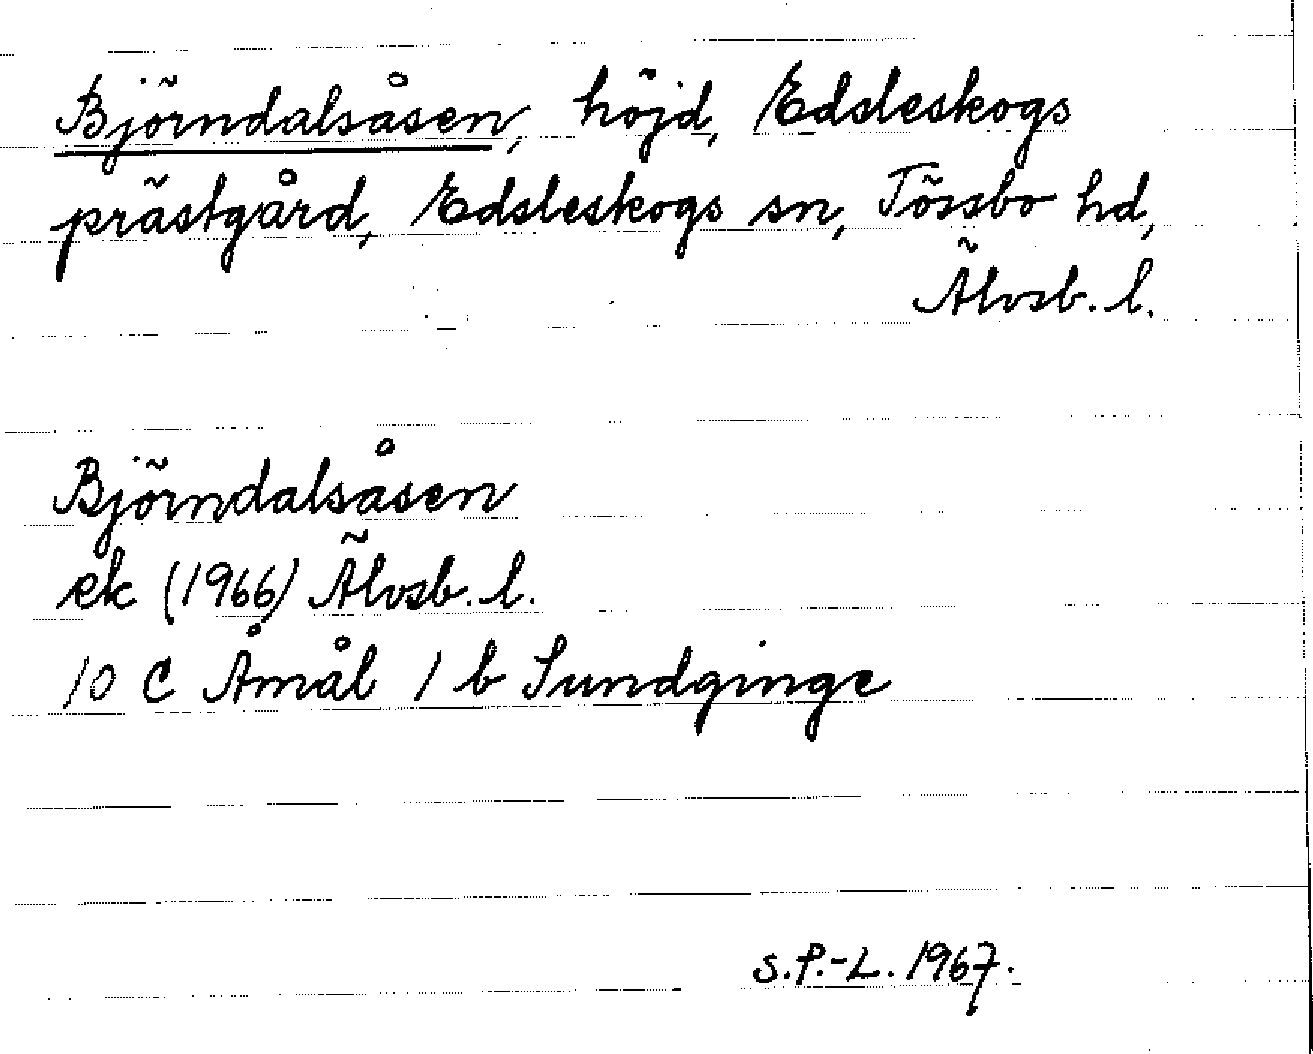 Björndalsåsen, höjd, Edsleskogs
prästgård, Edsleskogs sn, Tössbo hd,
Älvsb. l.
Björndalsåsen
ek (1966) Älvsb. l.
10 C Åmål 1 b Sundginge
S.P.-L. 1967.